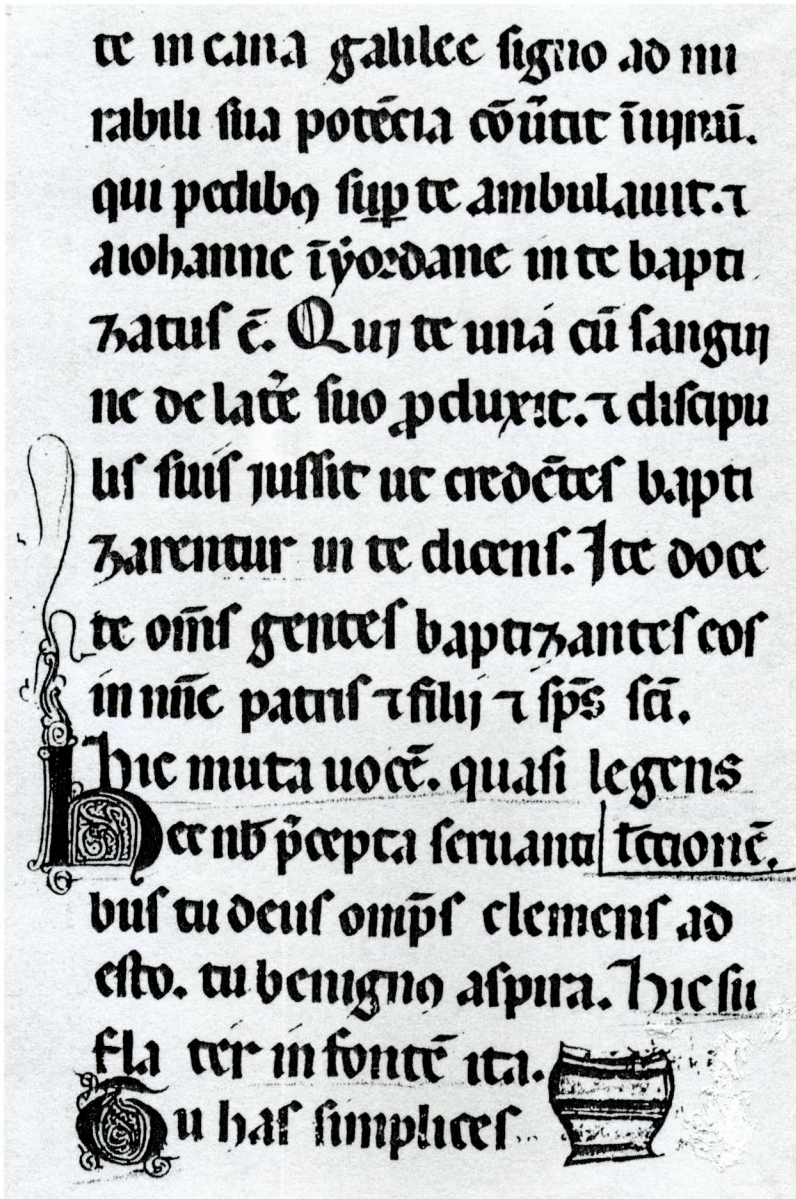 te in cana galilee signo ad mi
rabili sua potēcia cōūtit ī uinū.
qui pedibꝯ suꝑ te ambulauit. ⁊
a iohanne ī yordane in te bapti
zatus ē. Qui te una cū sangui
ne de late᷑ suo ꝓduxit. ⁊ discipu
lis suis jussit ut credētes bapti
zarentur in te dicens. Ite doce
te om̄s gentes baptizantes eos
in nn̄e patris ⁊ filij ⁊ sp̄s sc̄i.
hic muta uocē. quasi legens
Hec nb̄ p̄cepta seruanti lectionē.
bus tu deus omp̄s clemens ad
esto. tu benignꝯ aspira. hic su
fla ter in fontē ita.
Tu has simplices